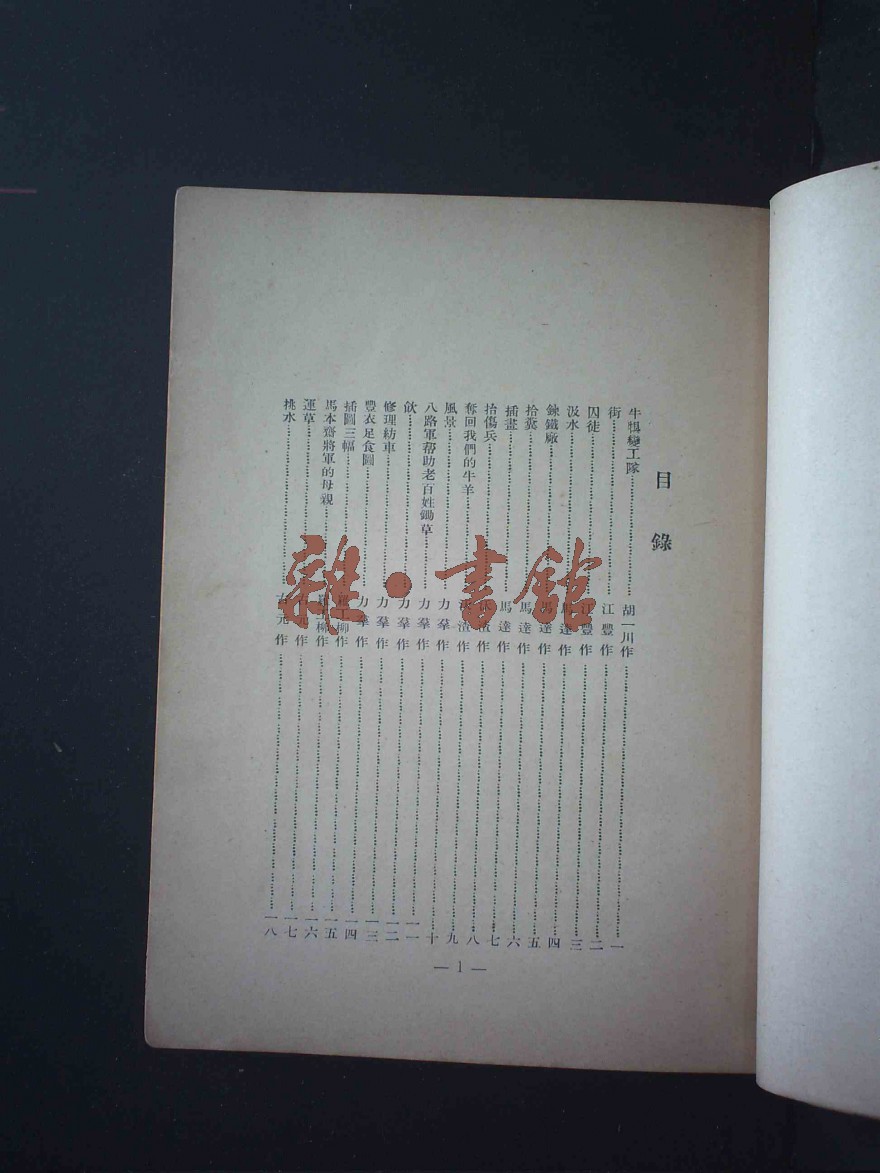 目錄
牛犋變工隊……胡一川作……一
街……江豐作……二
囚徒……江豐作……三
汲水……馬達作……四
鍊鐵廠……馬達作……五
拾糞……馬達作……六
插畫……馬達作……七
抬傷兵……沃渣作……八
奪回我們的牛羊……沃渣作……九
風景……力羣作……十
八路軍帮助老百姓鋤草……力羣作……一一
飲……力羣作……一二
修理紡車……力羣作……一三
豐衣足食圖……力羣作……一四
插圖三幅……工柳作……一五
馬本齋將軍的母親……工柳作……一六
運草……古元作……一七
挑水……古元作……一八
— 1 —
雜·書館